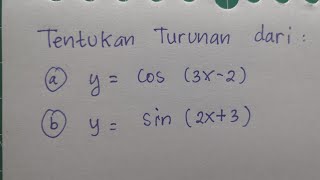 Tentukan Turunan dari :
(a) y = cos (3x-2)
(b) y = sin (2x+3)